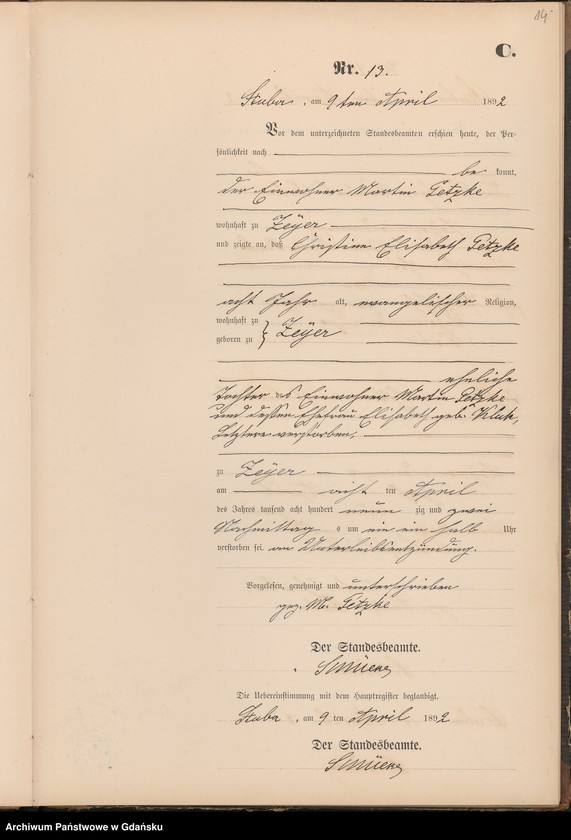 14
C.
Nr. 13.
Stuba, am 9 ten April 1892
Vor dem unterzeichneten Standesbeamten erschien heute, der Per-
sönlichkeit nach
be kannt,
der Einwohner Martin Getzke
wohnhaft zu Zeÿer
und zeigte an, daß Christine Elisabeth Getzke
acht Jahr alt, evangelischer Religion,
wohnhaft zu
geboren zu } Zeÿer
eheliche
Tochter des Einwohner Martin Getzke
und dessen Ehefrau Elisabeth geb. Kluk,
Letztere verstorben,
zu Zeÿer
am acht ten April
des Jahres tausend acht hundert neun zig und zwei
Nachmittag s um ein ein halb Uhr
verstorben sei an Unterleibsentzündung.
Vorgelesen, genehmigt und unterschrieben
gez. M. Getzke
Der Standesbeamte.
Die Uebereinstimmung mit dem Hauptregister beglaubigt.
Stuba, am 9 ten April 1892
Der Standesbeamte.
Archiwum Państwowe w Gdańsku